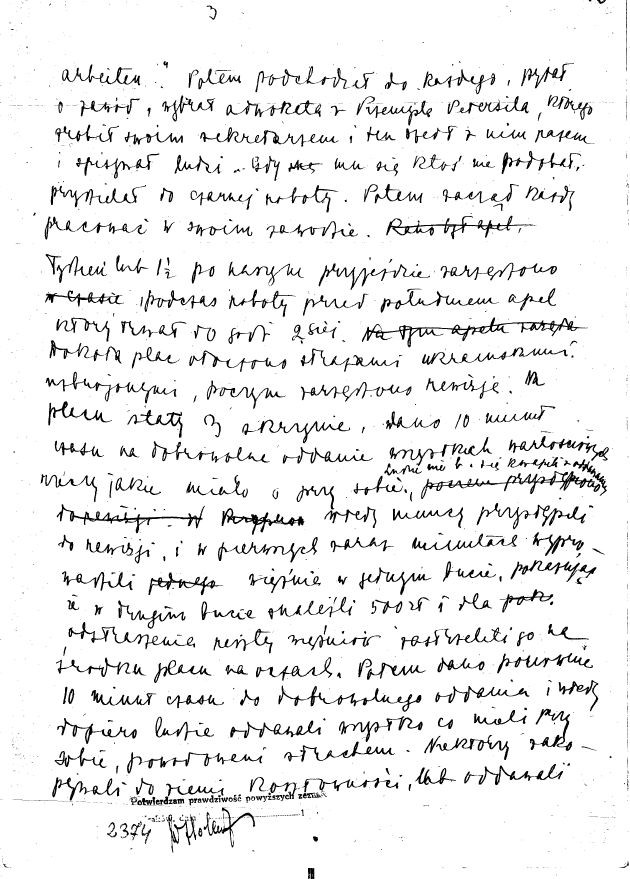 3
arbeiten." Potem podchodził do każdego, pytał
o zawód, wybrał adwokata z Przemyśla Petersila, którego
zrobił swoim sekretarzem i ten szedł z nim razem
i spisywał ludzi. Gdy mu się ktoś nie podobał,
przydzielał do czarnej roboty. Potem zaczął każdy
pracować w swoim zawodzie. Rano był apel.
Tydzień lub 1½ po naszym przyjeździe zarządzono
w czasie, podczas roboty przed południem apel
który trwał do godz 2giej. Na tym apelu zarzą
Dokoła plac otoczono strażami ukraińskimi
uzbrojonymi, poczym zarządzono rewizję. Na
placu stały 3 skrzynie, dano 10 minut
czasu na dobrowolne oddanie wszystkich wartościowych
ludzie nie b. się kwapili z oddaniem
rzeczy jakie miało się przy sobie, poczem przystąpiono
do rewizji. W wtedy niemcy przystąpili
do rewizji, i w pierwszych zaraz minutach wypro-
wadzili jednego więźnia w jednym bucie, pokazując
że w drugim bucie znaleźli 500zł i dla
odstraszenia reszty więźniów rozstrzelili go na
środku placu na oczach. Potem dano ponownie
10 minut czasu do dobrowolnego oddania i wtedy
dopiero ludzie oddawali wszystko co mieli przy
sobie, powodowani strachem. Niektórzy zako-
pywali do ziemi kosztowności, lub oddawali
Potwierdzam prawdziwość powyższych zeznań
2374